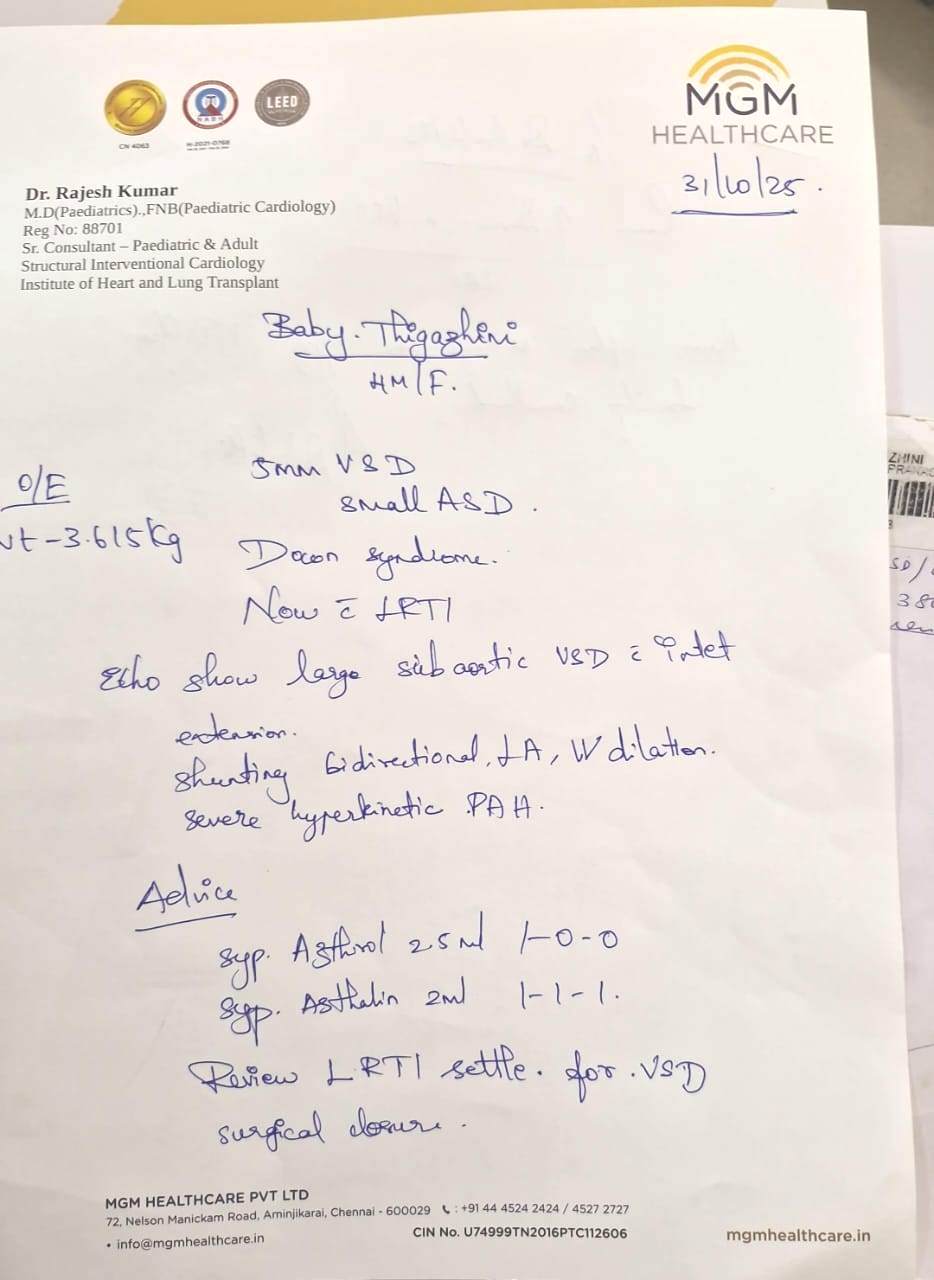 MGM
HEALTHCARE
31/10/25.
LEED
NABH
CN 4063
H-2021-0768
Dr. Rajesh Kumar
M.D(Paediatrics).,FNB(Paediatric Cardiology)
Reg No: 88701
Sr. Consultant – Paediatric & Adult
Structural Interventional Cardiology
Institute of Heart and Lung Transplant
Baby. Thigazhini
4M/F.
O/E
wt - 3.615 Kg
5mm VSD
small ASD.
Down syndrome.
Now c̄ LRTI
Echo show large sub aortic VSD c̄ inlet
extension.
shunting bidirectional, LA, LV dilation.
severe hyperkinetic PAH.
Advice
Syp. 2.5 ml 1-0-0
Syp. Asthalin 2ml 1-1-1.
Review LRTI settle. for. VSD
surgical closure.
ZHINI
MGM HEALTHCARE PVT LTD
72, Nelson Manickam Road, Aminjikarai, Chennai - 600029 : +91 44 4524 2424 / 4527 2727
• info@mgmhealthcare.in CIN No. U74999TN2016PTC112606
mgmhealthcare.in